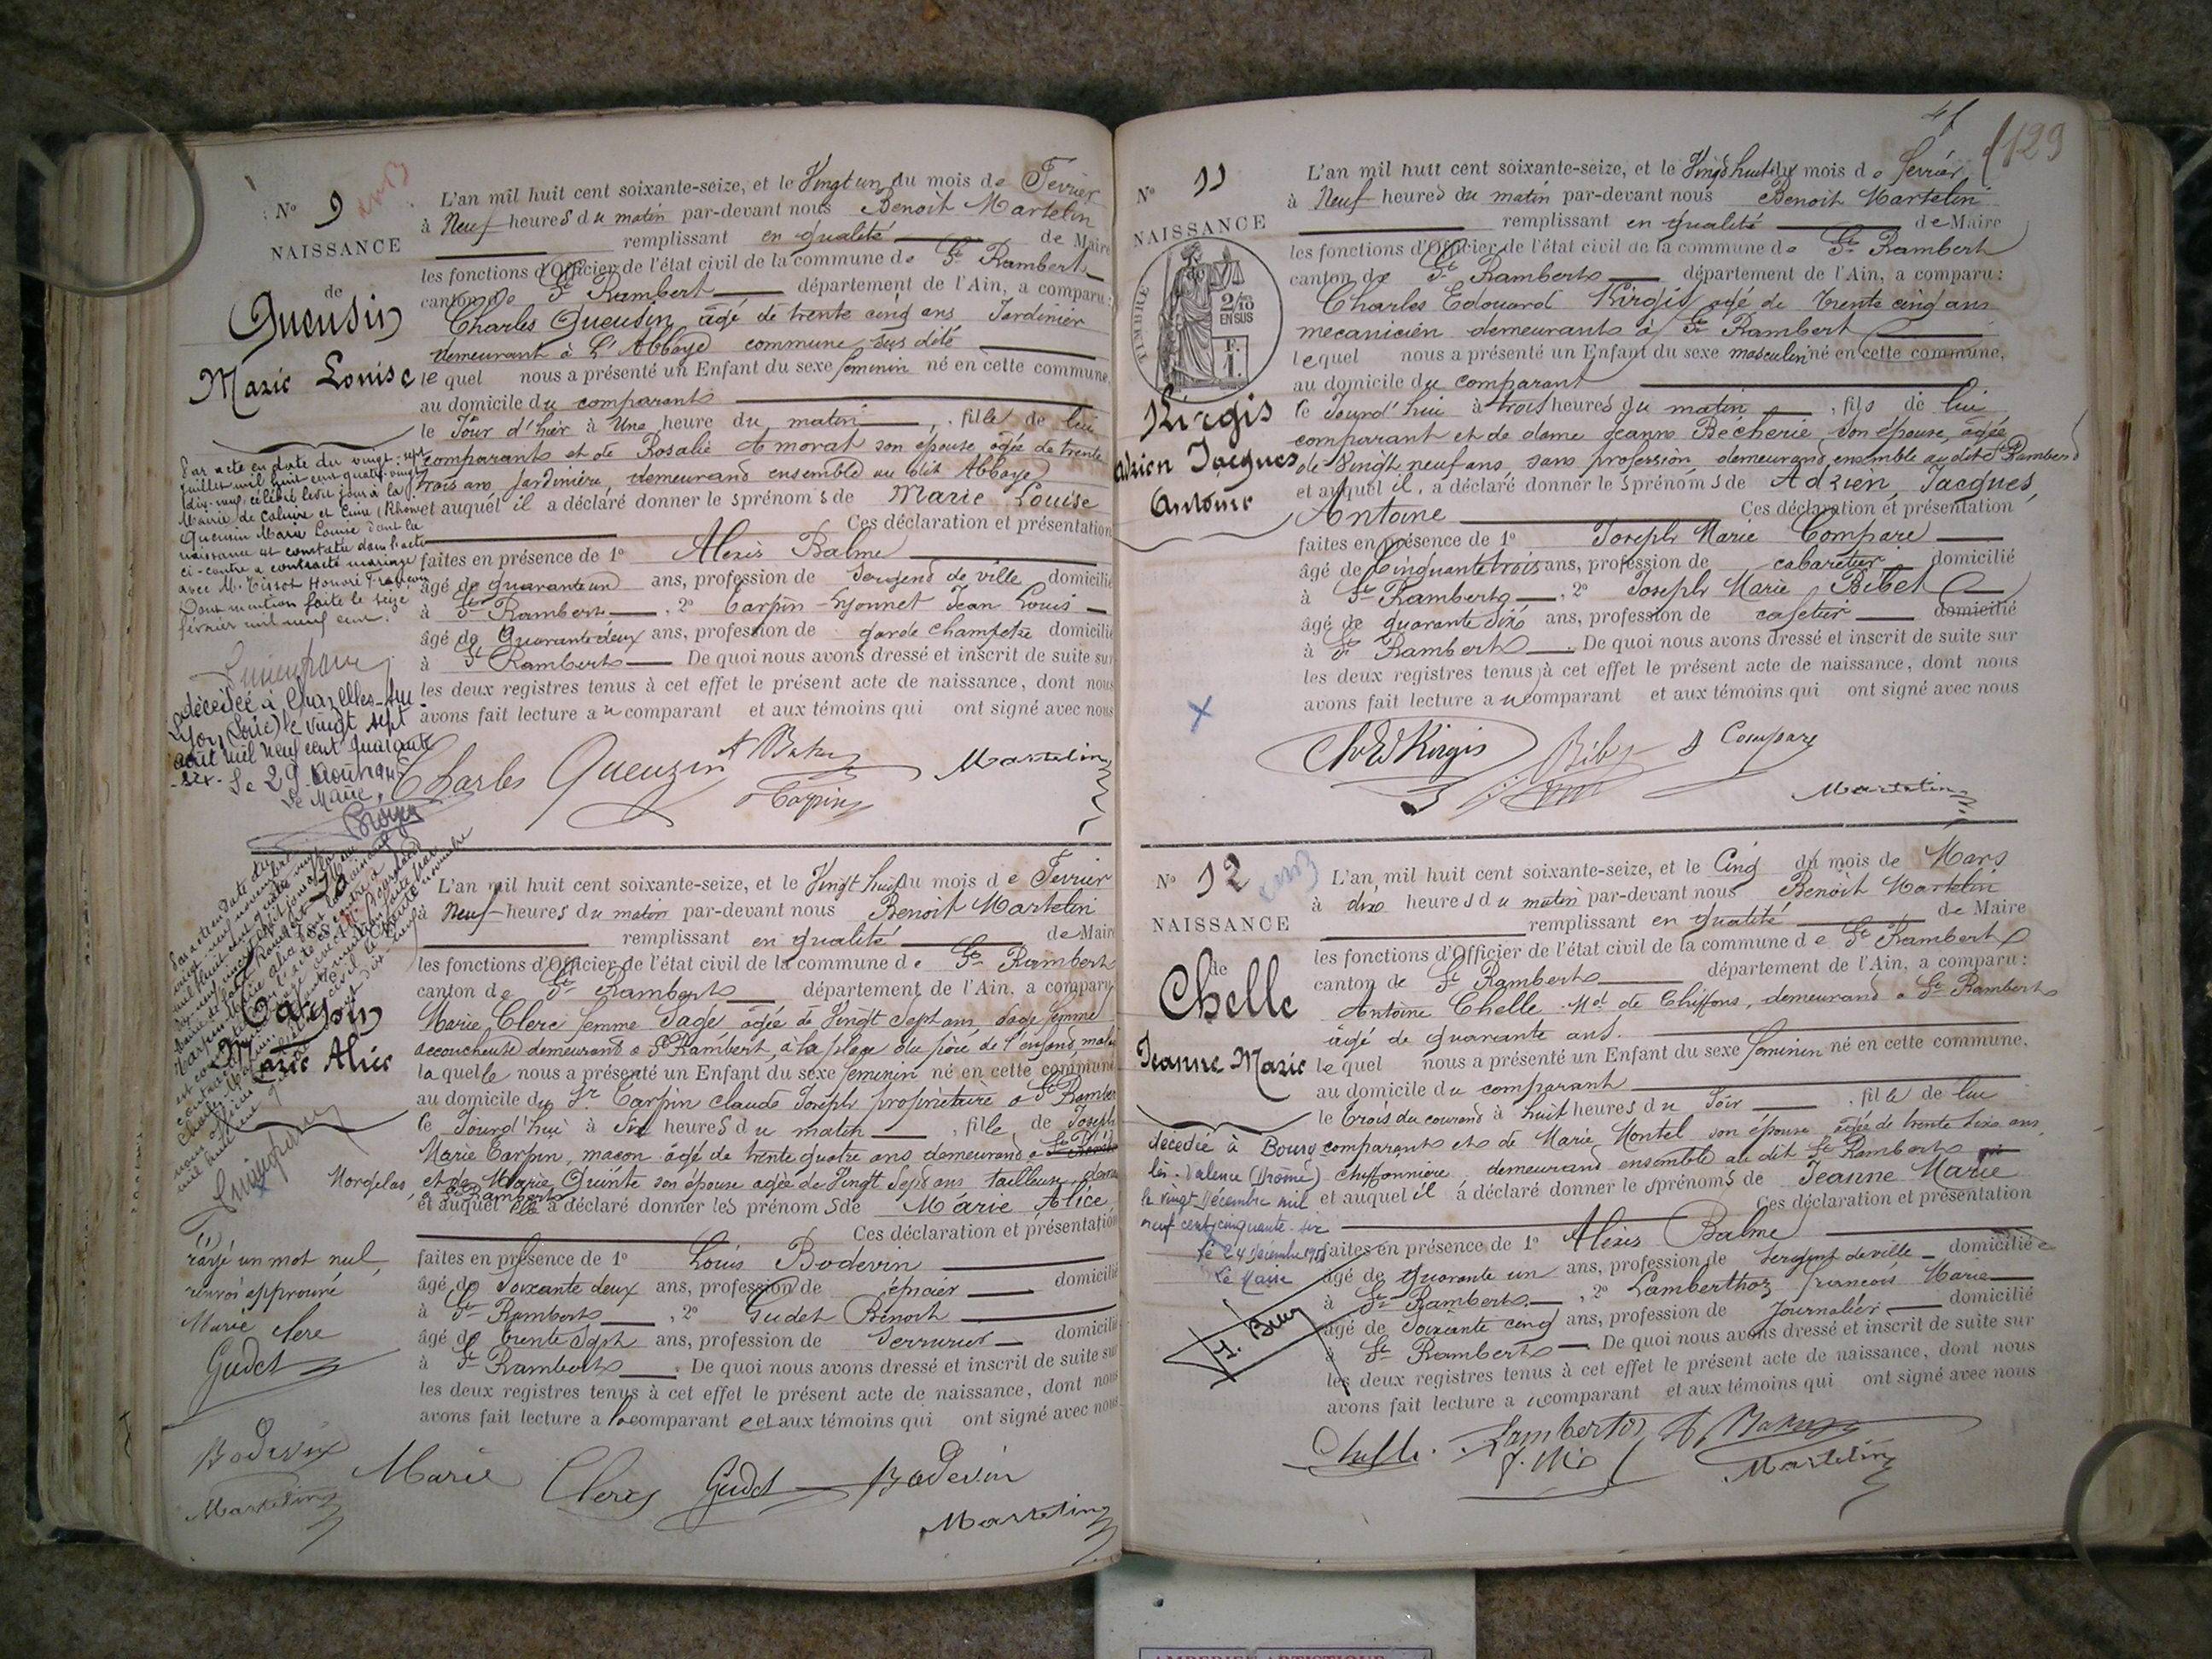 N° 9
NAISSANCE
de
Queusin
Marie Louise
L'an mil huit cent soixante-seize, et le Vingt un du mois de Fevrier
à Neuf heures du matin par-devant nous Benoit Martelin
remplissant en qualité de Maire
les fonctions d'Officier de l'état civil de la commune de St Rambert
canton de St Rambert département de l'Ain, a comparu:
Charles Queusin âgé de trente cinq ans Jardinier
demeurant à L'Abbaye commune sus dite
lequel nous a présenté un Enfant du sexe feminin né en cette commune,
au domicile du comparant
le Jour d'hier à Une heure du matin, fille de lui
comparant et de Rosalie Amorat son épouse agée de trente
trois ans Jardinière, demeurand ensemble au dit Abbaye
et auquel il a déclaré donner les prénoms de Marie Louise
Ces déclaration et présentation
faites en présence de 1° Alexis Balme
âgé de quarante un ans, profession de Sergend de ville domicilié
à St Rambert, 2° Carpin-Lyonnet Jean Louis
âgé de Quarante deux ans, profession de garde champetre domicilié
à St Rambert De quoi nous avons dressé et inscrit de suite sur
les deux registres tenus à cet effet le présent acte de naissance, dont nous
avons fait lecture au comparant et aux témoins qui ont signé avec nous
Charles Queuzin
Martelin
Par acte en date du vingt-sept
juillet mil huit cent quatre-vingt
dix-neuf, célébré le dit jour à la
Mairie de Caluire et Cuire (Rhône)
Queusin Marie Louise dont la
naissance est constatée dans l'acte
ci-contre a contracté mariage
avec Mr Tissot Honoré François
Dont mention faite le seize
février mil neuf cent.
décédée à Chazelles-sur-
Lyon (Loire) le vingt sept
août mil neuf cent quarante
Le 29 Août
Le Maire,
Carpin
Marie Alice
L'an mil huit cent soixante-seize, et le Vingt huit du mois de Fevrier
à Neuf heures du matin par-devant nous Benoit Martelin
remplissant en qualité de Maire
les fonctions d'Officier de l'état civil de la commune de St Rambert
canton de St Rambert département de l'Ain, a comparu
Marie Clerc femme Sage agée de Vingt Sept ans, sage femme
accoucheuse demeurand à St Rambert, à la place du père de l'enfand,
laquelle nous a présenté un Enfant du sexe feminin né en cette commune
au domicile du Sr Carpin claude Joseph propriétaire à St Rambert
le Jourd'hui à Six heures du matin, fille de Joseph
Marie Carpin, macon âgé de trente quatre ans demeurand à
et de Marie Quinte son épouse agée de Vingt Sept ans tailleuse
à St Rambert
et auquel elle a déclaré donner les prénoms de Marie Alice
Ces déclaration et présentation
faites en présence de 1° Louis Bodevin
âgé de Soixante deux ans, profession de épicier domicilié
à St Rambert, 2° Gudet Benoit
âgé de trente Sept ans, profession de Serrurier domicilié
à St Rambert. De quoi nous avons dressé et inscrit de suite sur
les deux registres tenus à cet effet le présent acte de naissance, dont nous
avons fait lecture a la comparante et aux témoins qui ont signé avec nous
rayé un mot nul,
renvoi approuvé
Marie clerc
Gudet
Bodevin
Martelin
Marie Clerc Gudet Bodevin
Martelin
129
N° 11
NAISSANCE
TIMBRE
2/10
EN SUS
F.
1.
Kirgis
Adrien Jacques
Antoine
L'an mil huit cent soixante-seize, et le Vingt huit du mois de fevrier
à Neuf heures du matin par-devant nous Benoit Martelin
remplissant en qualité de Maire
les fonctions d'Officier de l'état civil de la commune de St Rambert
canton de St Rambert département de l'Ain, a comparu:
Charles Edouard Kirgis agé de trente cinq ans
mecanicien demeurant à St Rambert
lequel nous a présenté un Enfant du sexe masculin né en cette commune,
au domicile du comparant
le Jourd'hui à trois heures du matin, fils de lui
comparant et de dame Jeanne Bécherie, son épouse, agée
de Vingt neuf ans, sans profession, demeurand ensemble au dit St Rambert
et auquel il, a déclaré donner les prénoms de Adrien, Jacques,
Antoine Ces déclaration et présentation
faites en présence de 1° Joseph Marie Compare
âgé de Cinquante trois ans, profession de cabaretier domicilié
à St Rambert, 2° Joseph Marie Bibet
âgé de quarante dix ans, profession de cafetier domicilié
à St Rambert. De quoi nous avons dressé et inscrit de suite sur
les deux registres tenus à cet effet le présent acte de naissance, dont nous
avons fait lecture au comparant et aux témoins qui ont signé avec nous
Ch Ed Kirgis Compare
Martelin
N° 12
NAISSANCE
de
Chelle
Jeanne Marie
L'an mil huit cent soixante-seize, et le Cinq du mois de Mars
à dix heures du matin par-devant nous Benoit Martelin
remplissant en qualité de Maire
les fonctions d'Officier de l'état civil de la commune de St Rambert
canton de St Rambert département de l'Ain, a comparu:
Antoine Chelle Md de Chiffons, demeurand à St Rambert
âgé de quarante ans.
lequel nous a présenté un Enfant du sexe feminin né en cette commune,
au domicile du comparant
le trois du courand à huit heures du Soir, fille de lui
comparant et de Marie Montel son épouse agée de trente six ans
chiffonnière demeurand ensemble au dit St Rambert
et auquel il a déclaré donner les prénoms de Jeanne Marie
Ces déclaration et présentation
faites en présence de 1° Alexis Balme
âgé de quarante un ans, profession de Sergent de ville domicilié
à St Rambert, 2° Lamberthoz francois Marie
âgé de Soixante cinq ans, profession de Journalier domicilié
à St Rambert. De quoi nous avons dressé et inscrit de suite sur
les deux registres tenus à cet effet le présent acte de naissance, dont nous
avons fait lecture au comparant et aux témoins qui ont signé avec nous
décédée à Bourg
lès-Valence (Drôme)
le vingt décembre mil
neuf cent cinquante six
le 24 décembre 1956
Le Maire
Chelle
Martelin